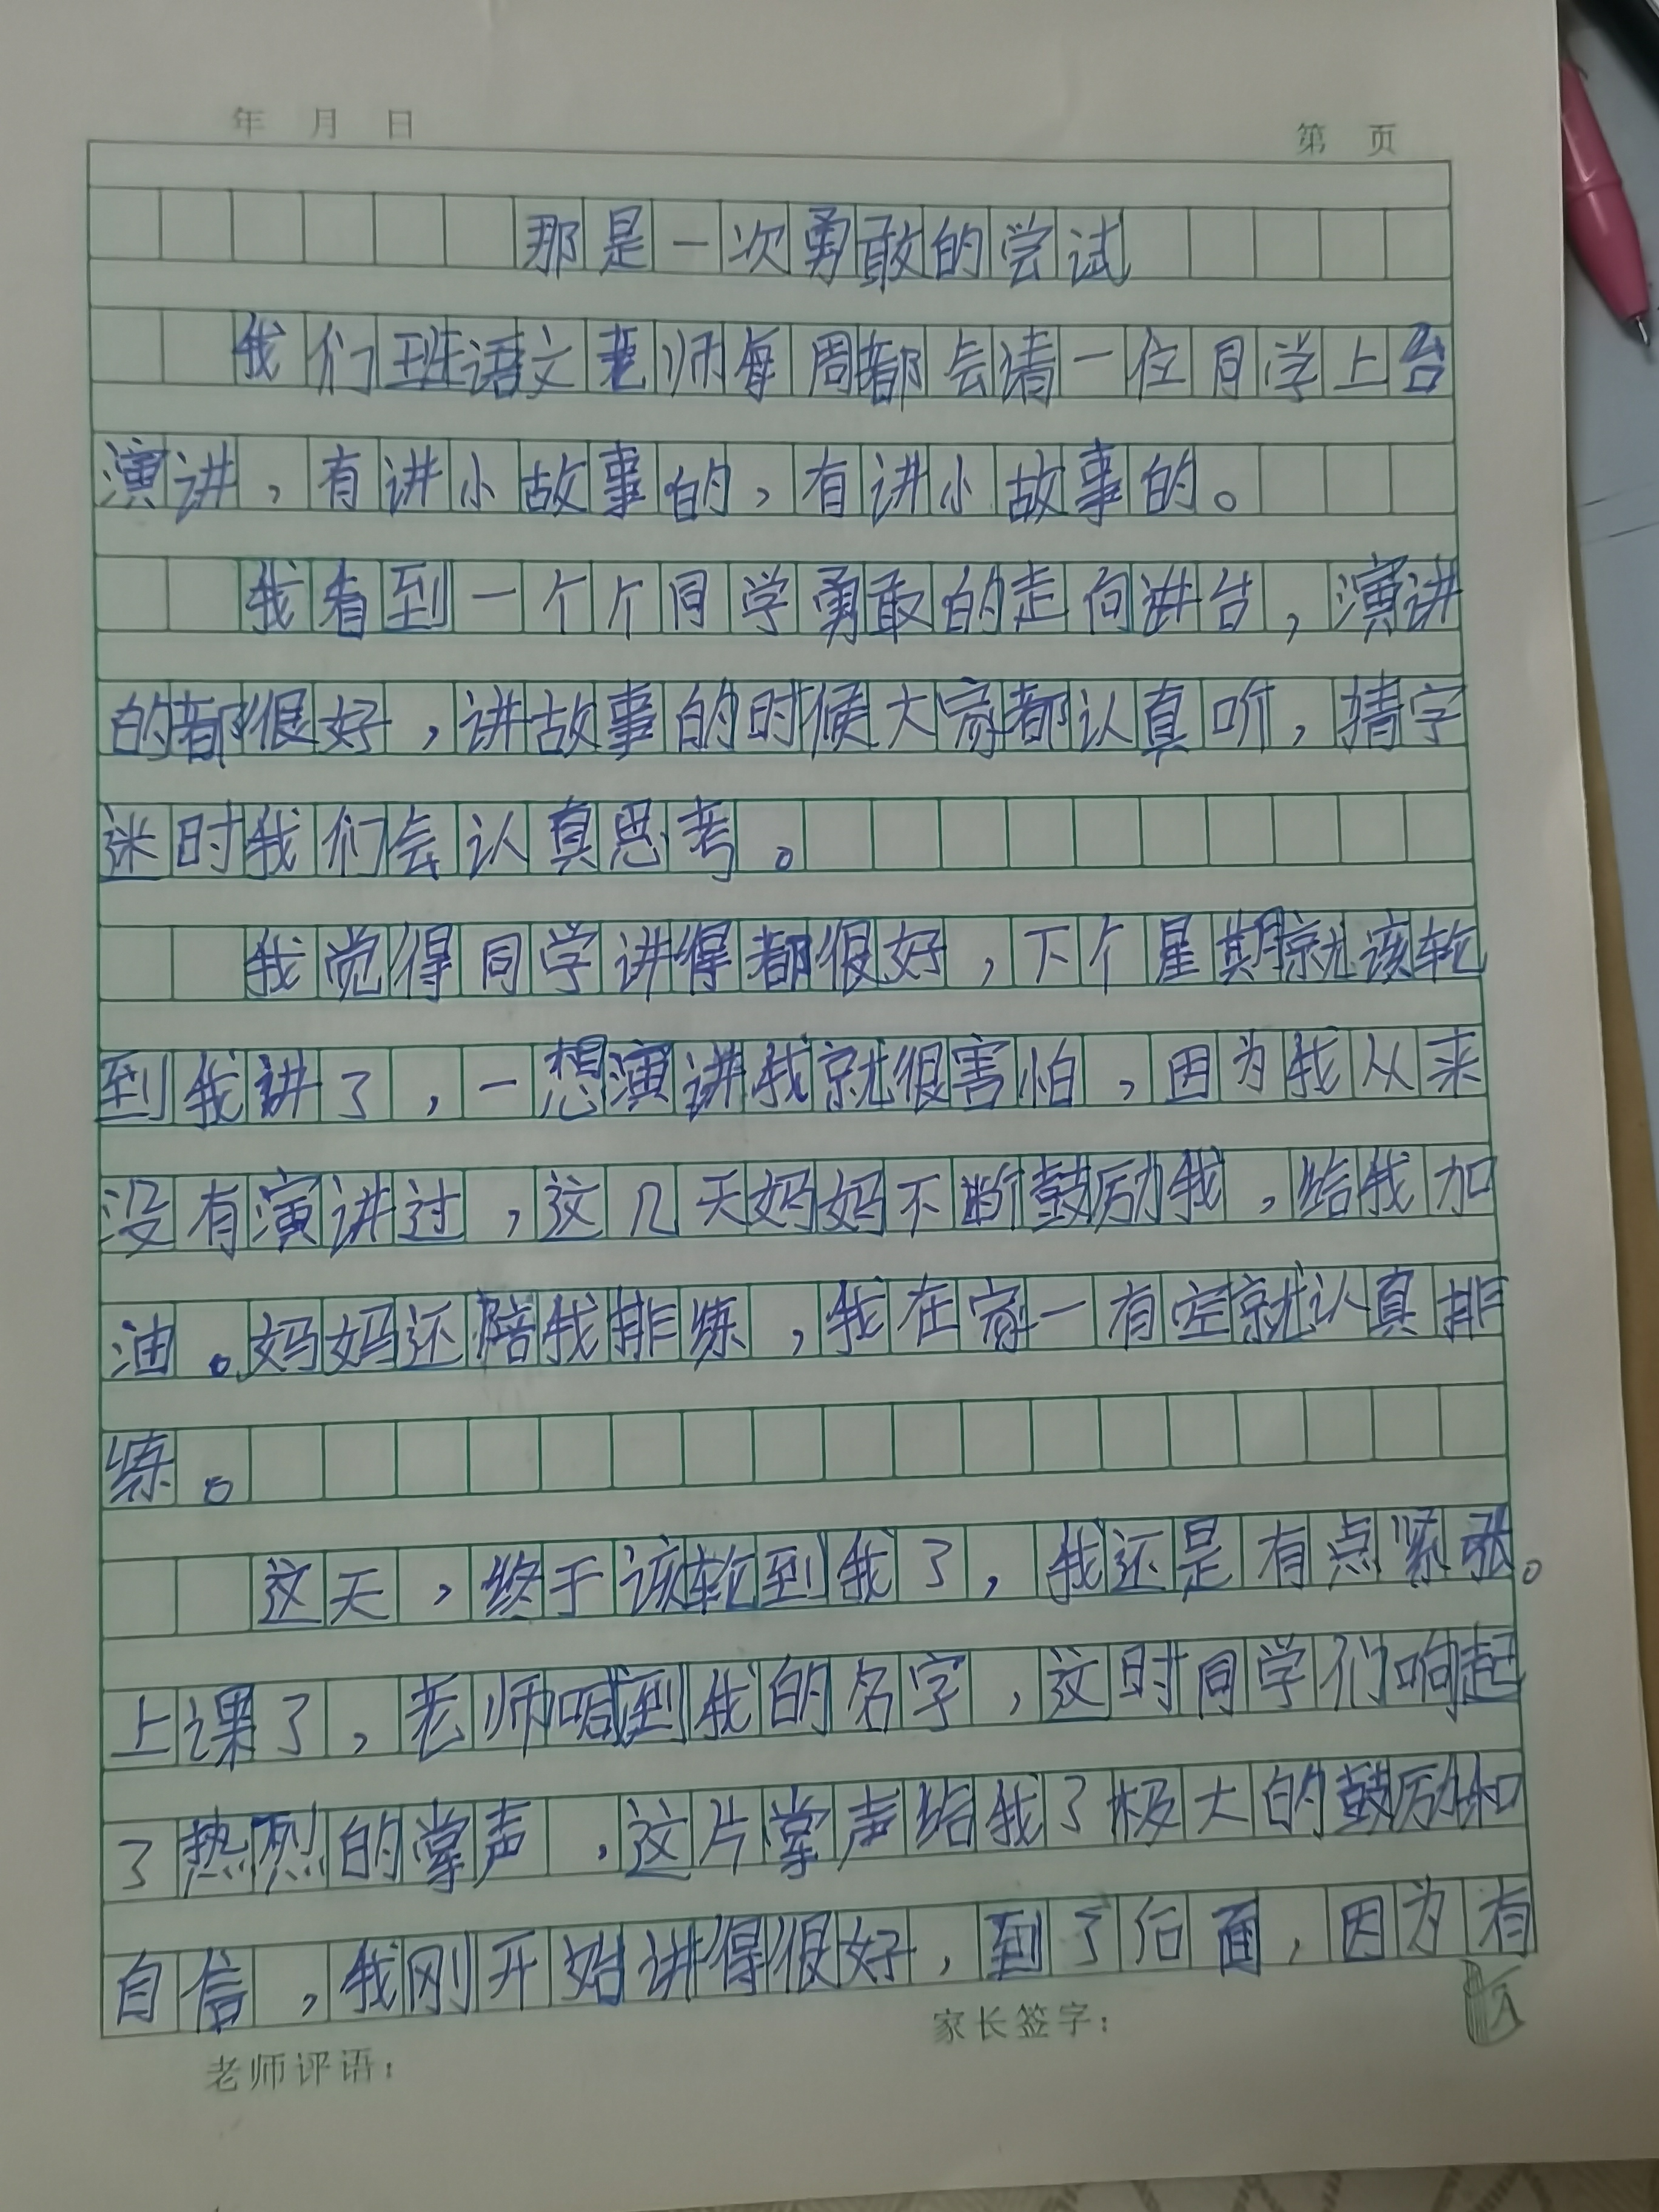 年 月 日
第 页
那是一次勇敢的尝试
我们班语文老师每周都会请一位同学上台
演讲,有讲小故事的,有讲小故事的。
我看到一个个同学勇敢的走向讲台,演讲
的都很好,讲故事的时候大家都认真听,猜字
迷时我们会认真思考。
我觉得同学讲得都很好,下个星期就该轮
到我讲了,一想演讲我就很害怕,因为我从来
没有演讲过,这几天妈妈不断鼓励我,给我加
油。妈妈还陪我排练,我在家一有空就认真排
练。
这天,终于该轮到我了,我还是有点紧张。
上课了,老师喊到我的名字,这时同学们响起
了热烈的掌声,这片掌声给我了极大的鼓励和
自信,我刚开始讲得很好,到了后面,因为有
家长签字:
老师评语: